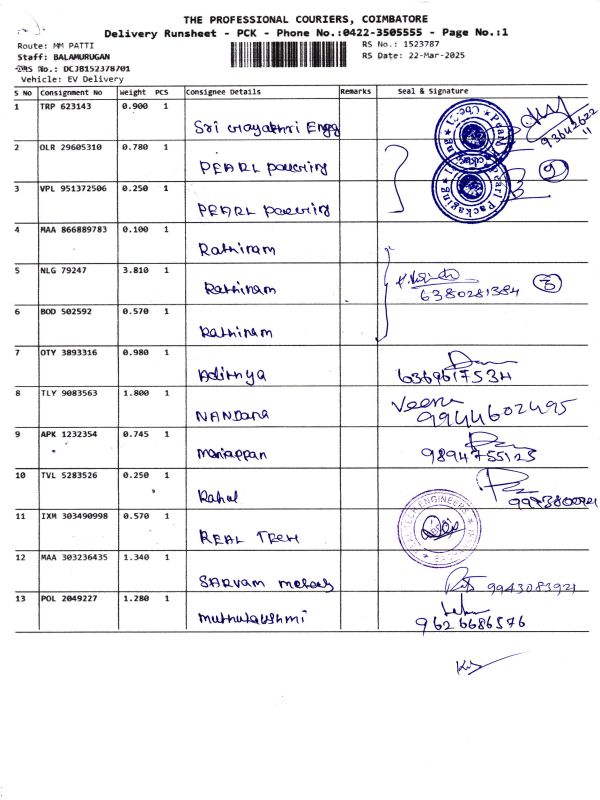 THE PROFESSIONAL COURIERS, COIMBATORE
Delivery Runsheet - PCK - Phone No.:0422-3505555 - Page No.:1
Route: MM PATTI
RS No.: 1523787
Staff: BALAMURUGAN
RS Date: 22-Mar-2025
DRS No.: DCJB152378701
Vehicle: EV Delivery
S No Consignment No Weight PCS Consignee Details Remarks Seal & Signature
1 TRP 623143 0.900 1
Sri Engg
2 OLR 29605310 0.780 1
PEARL
3 VPL 951372506 0.250 1
PEARL
Pearl Packaging
4 MAA 866889783 0.100 1
Rathinam
5 NLG 79247 3.810 1
Rathinam 6380281384 3
6 BOD 502592 0.570 1
Rathinam
7 OTY 3893316 0.980 1
Adithya 6369617534
8 TLY 9083563 1.800 1
NANDana Veena 9944602495
9 APK 1232354 0.745 1
Mariappan 9894755123
10 TVL 5283526 0.250 1
Rahul
11 IXM 303490998 0.570 1
REAL TECH ENGINEERS
12 MAA 303236435 1.340 1
SARVAM metals 9943083921
13 POL 2049227 1.280 1
Muthulakshmi 9626686576